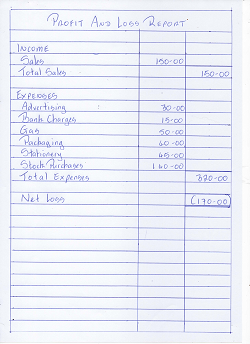 PROFIT AND LOSS REPORT
INCOME
Sales 150-00
Total Sales 150-00
EXPENSES
Advertising 30-00
Bank Charges 15-00
Gas 50-00
Packaging 40-00
Stationery 45-00
Stock Purchases 140-00
Total Expenses 320-00
Net Loss (170-00)